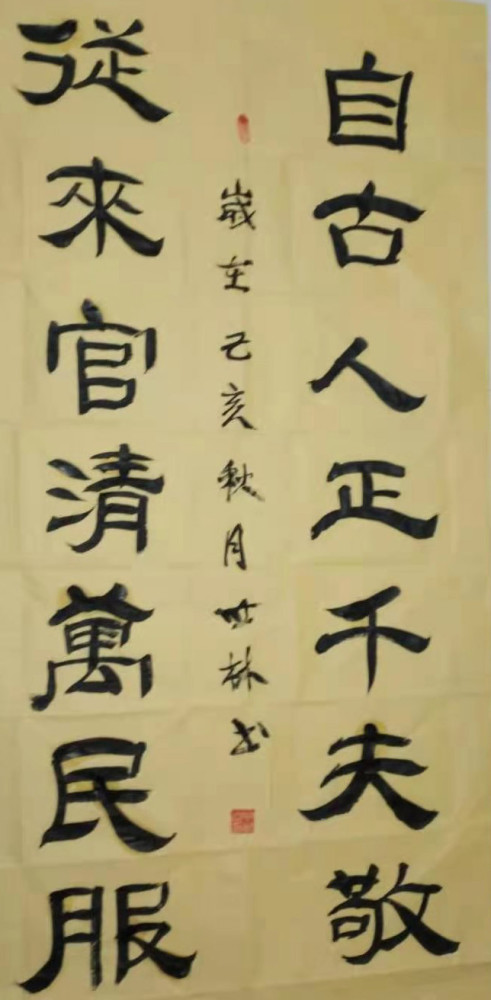 自古人正千夫敬
從來官清萬民服
歲在己亥秋月世林书